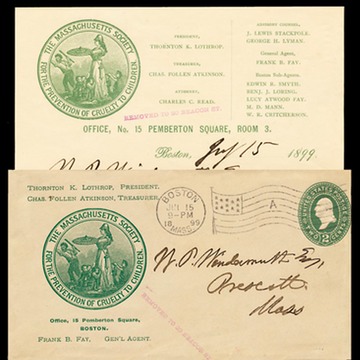 THE MASSACHUSETTS SOCIETY
FOR THE PREVENTION OF CRUELTY TO CHILDREN.
PRESIDENT,
THORNTON K. LOTHROP.
TREASURER,
CHAS. FOLLEN ATKINSON.
ATTORNEY,
CHARLES C. READ.
J. LEWIS STACKPOLE,
GEORGE H. LYMAN.
General Agent,
FRANK B. FAY.
Boston Sub-Agents,
EDWIN R. SMYTH,
BENJ. J. LORING,
LUCY ATWOOD FAY,
H. D. MANN,
W. K. CRITCHERSON.
REMOVED TO 43 BEACON ST.
OFFICE, No. 15 PEMBERTON SQUARE, ROOM 3.
Boston, 15 1899
THORNTON K. LOTHROP, PRESIDENT.
CHAS. FOLLEN ATKINSON, TREASURER.
THE MASSACHUSETTS SOCIETY
FOR THE PREVENTION OF CRUELTY TO CHILDREN.
Office, 15 Pemberton Square,
BOSTON.
FRANK B. FAY, GEN'L AGENT.
BOSTON
15
8-PM
18 99
MASS.
A
UNITED STATES POSTAGE
2
W. P.
Prescott
Mass
REMOVED TO 43 BEACON ST.